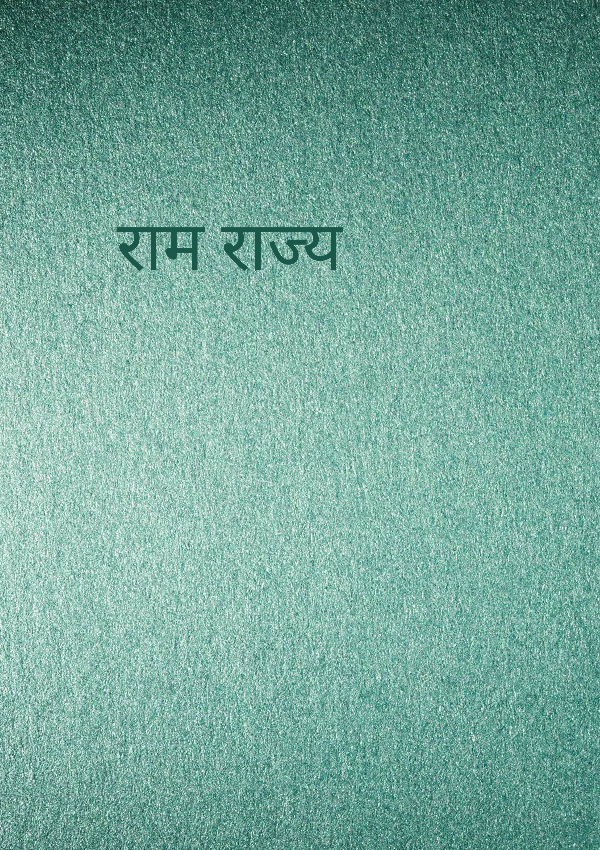 राम राज्य